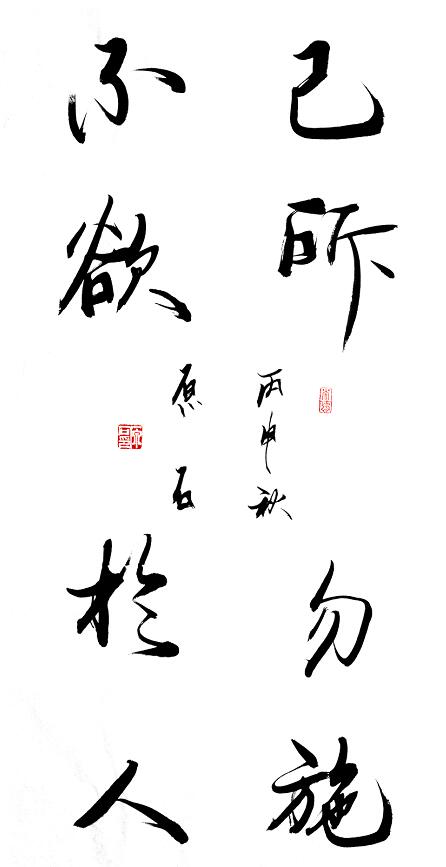 己所
不欲
勿施
於人
丙申秋
原石